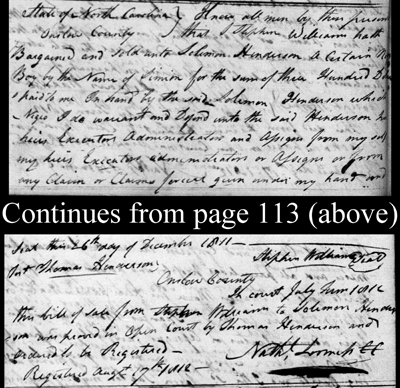 State of North Carolina } Know all men by these presents
Onslow County } that I Stephen Williams hath
Bargained and Sold unto Solomon Henderson A Certain
Boy by the Name of Simon for the sum of three Hundred
paid to me In hand by the said Solomon Henderson which
Negro I do warrant and Defend unto the said Henderson his
heirs Executors Administrators and Assigns from my self
my heirs Executors administrators or Assigns or from
any Claim or Claims forever given under my hand and
Continues from page 113 (above)
Seal this 26th day of December 1811 — Stephen Williams Seal
Test Thomas Henderson
Onslow County
In court July Term 1812
this bill of sale from Stephen Williams to Solomon Hender
son was proved in Open Court by Thomas Henderson and
ordered to be Registered —
Registered Augt 17th 1812 — Nathl Loomis CC